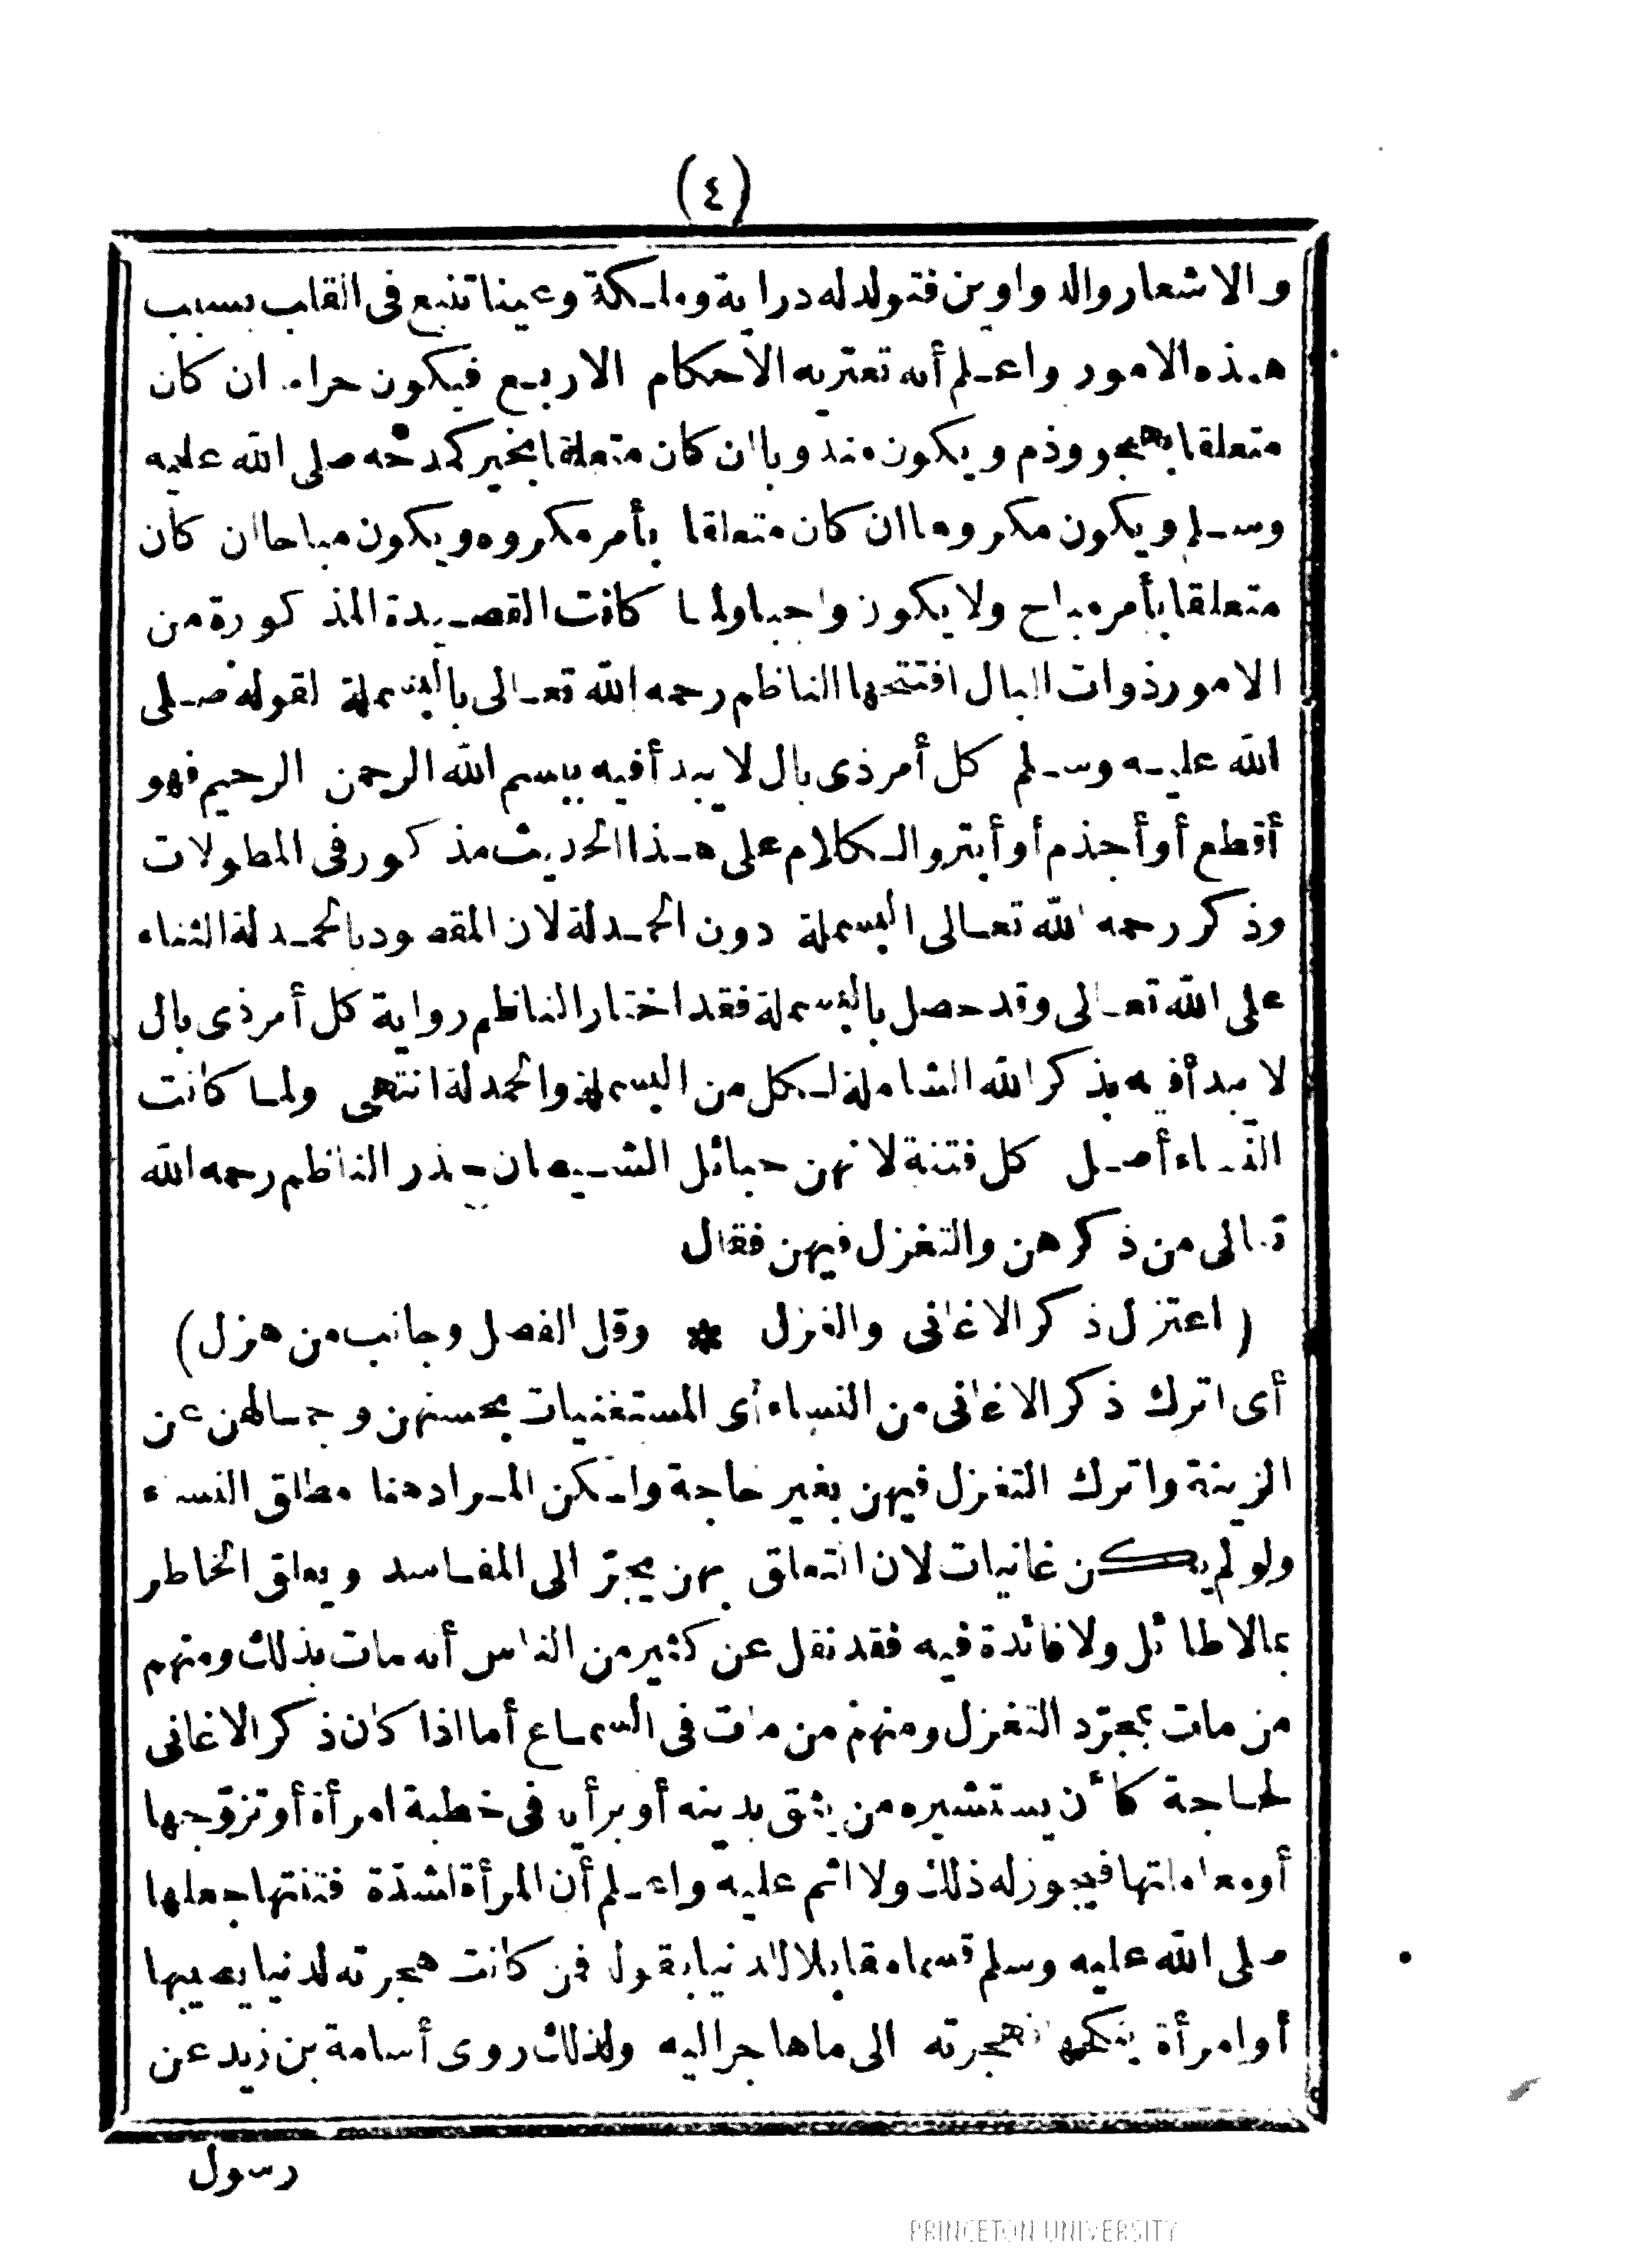 (٤)
والاشعار والدواوين فتولد له دراية وملكة وعينا تنبع فى القلب بسبب
هذه الامور واعلم أنه تعتريه الأحكام الاربع فيكون حراما ان كان
متعلقا بهجو وذم ويكون مندوبا ان كان متعلقا بخير كمدحه صلى الله عليه
وسلم ويكون مكروها ان كان متعلقا بأمر مكروه ويكون مباحا ان كان
متعلقا بأمر مباح ولا يكون واجبا ولما كانت القصيدة المذكورة من
الامور ذوات البال افتتحها الناظم رحمه الله تعالى بالبسملة لقوله صلى
الله عليه وسلم كل أمر ذى بال لا يبدأ فيه ببسم الله الرحمن الرحيم فهو
أقطع أو أجذم أو أبتر والكلام على هذا الحديث مذكور فى المطولات
وذكر رحمه الله تعالى البسملة دون الحمدلة لان المقصود بالحمدلة الثناء
على الله تعالى وقد حصل بالبسملة فقد اختار الناظم رواية كل أمر ذى بال
لا يبدأ فيه بذكر الله الشاملة لكل من البسملة والحمدلة انتهى ولما كانت
النساء أصل كل فتنة لانهن حبائل الشيطان حذر الناظم رحمه الله
تعالى من ذكرهن والتغزل فيهن فقال
(اعتزل ذكر الاغانى والغزل * وقل الفصل وجانب من هزل)
أى اترك ذكر الاغانى من النساء أى المستغنيات بحسنهن وجمالهن عن
الزينة واترك التغزل فيهن بغير حاجة ولكن المراد هنا مطلق النساء
ولو لم يكن غانيات لان التعلق بهن يجرّ الى المفاسد ويعلق الخاطر
بمالا طائل ولا فائدة فيه فقد نقل عن كثير من الناس أنه مات بذلك ومنهم
من مات بمجرّد التغزل ومنهم من مات فى السماع أما اذا كان ذكر الاغانى
لحاجة كأن يستشيره من يثق بدينه أو برأيه فى خطبة امرأة أو تزوّجها
أو معاملتها فيجوز له ذلك ولا اثم عليه واعلم أن المرأة لشدّة فتنتها جعلها
صلى الله عليه وسلم قسما مقابلا للدنيا بقول فمن كانت هجرته لدنيا يصيبها
أو امرأة ينكحها فهجرته الى ما هاجر اليه ولذلك روى أسامة بن زيد عن
رسول
PRINCETON UNIVERSITY